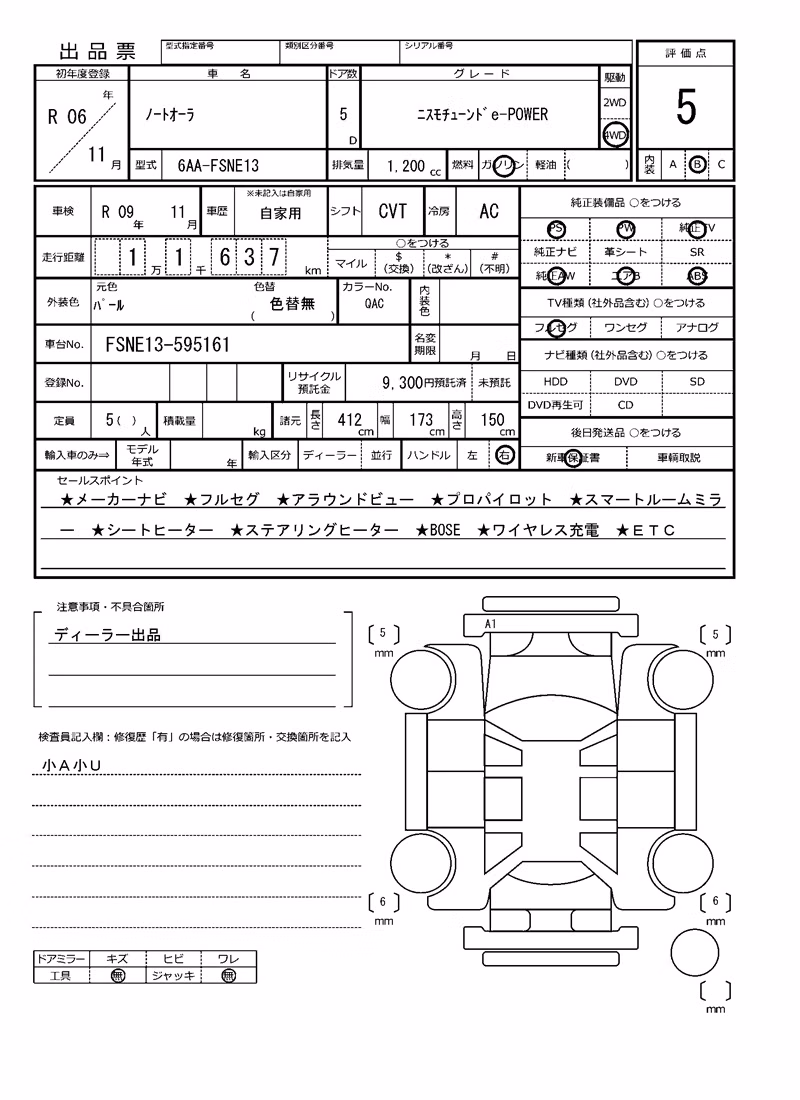 出品票 型式指定番号 類別区分番号 シリアル番号 評価点
初年度登録 車名 ドア数 グレード 駆動
R 06 年 11 月 ノートオーラ 5 D ニスモチューンドe-POWER 2WD 4WD 5
型式 6AA-FSNE13 排気量 1,200 cc 燃料 ガソリン 軽油 ( ) 内装 A B C
車検 R 09 年 11 月 車歴 ※未記入は自家用 自家用 シフト CVT 冷房 AC 純正装備品 ○をつける
PS PW 純正TV
走行距離 1 万 1 千 6 3 7 km ○をつける マイル $ (交換) * (改ざん) # (不明) 純正ナビ 革シート SR
純正AW エアB ABS
外装色 元色 パール 色替 色替無 ( ) カラーNo. QAC 内装色 TV種類(社外品含む)○をつける
フルセグ ワンセグ アナログ
車台No. FSNE13-595161 名変期限 月 日 ナビ種類(社外品含む)○をつける
登録No. リサイクル預託金 9,300円預託済 未預託 HDD DVD SD
DVD再生可 CD
定員 5( ) 人 積載量 kg 諸元 長さ 412 cm 幅 173 cm 高さ 150 cm 後日発送品 ○をつける
輸入車のみ⇒ モデル年式 年 輸入区分 ディーラー 並行 ハンドル 左 右 新車保証書 車輌取説
セールスポイント
★メーカーナビ ★フルセグ ★アラウンドビュー ★プロパイロット ★スマートルームミラ
ー ★シートヒーター ★ステアリングヒーター ★BOSE ★ワイヤレス充電 ★ETC
注意事項・不具合箇所
ディーラー出品
検査員記入欄:修復歴「有」の場合は修復箇所・交換箇所を記入
小A小U
ドアミラー キズ ヒビ ワレ
工具 無 ジャッキ 無
A1
5 mm
5 mm
6 mm
6 mm
mm